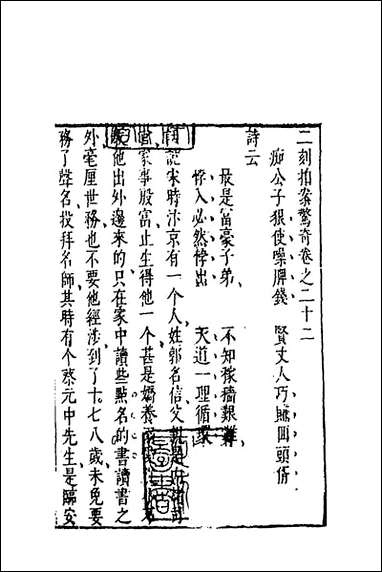 二刻拍案驚奇卷之二十二
痴公子狠使噪脾錢　賢丈人巧賺回頭壻
詩云
最是富豪子弟　不知稼穡艱難
悖入必然悖出　天道一理循環
話說宋時汴京有一個人姓郭名信父親是
家事殷富止生得他一個甚是嬌養
他出外邊來的只在家中讀些點名的書讀書之
外毫厘世務也不要他經涉到了十七八歲未免要
務了聲名投拜名師其時有個蔡元中先生是臨安